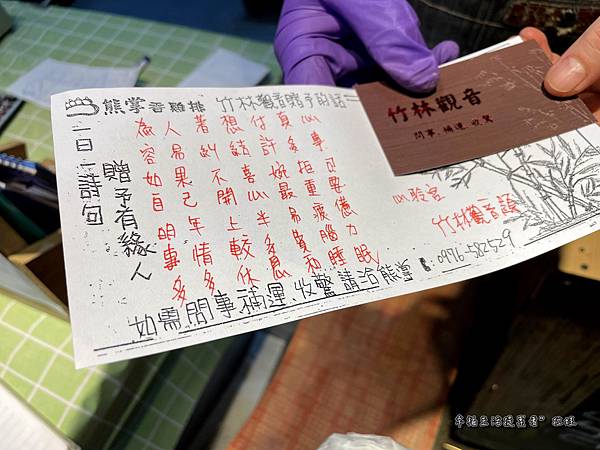 熊掌香雞排 竹林觀音贈言詩話
一日一詩句
贈予有緣人
為人著想付真心
容易糾結許多事
如果不喜婉拒可
自己開心最重要
明年上半易疲憶
事情較多負腦力
多多休息和睡眠
心玲宮
竹林觀音
如需問事補運、收驚請洽熊掌 0976-582529
竹林觀音
問事. 補運. 收驚